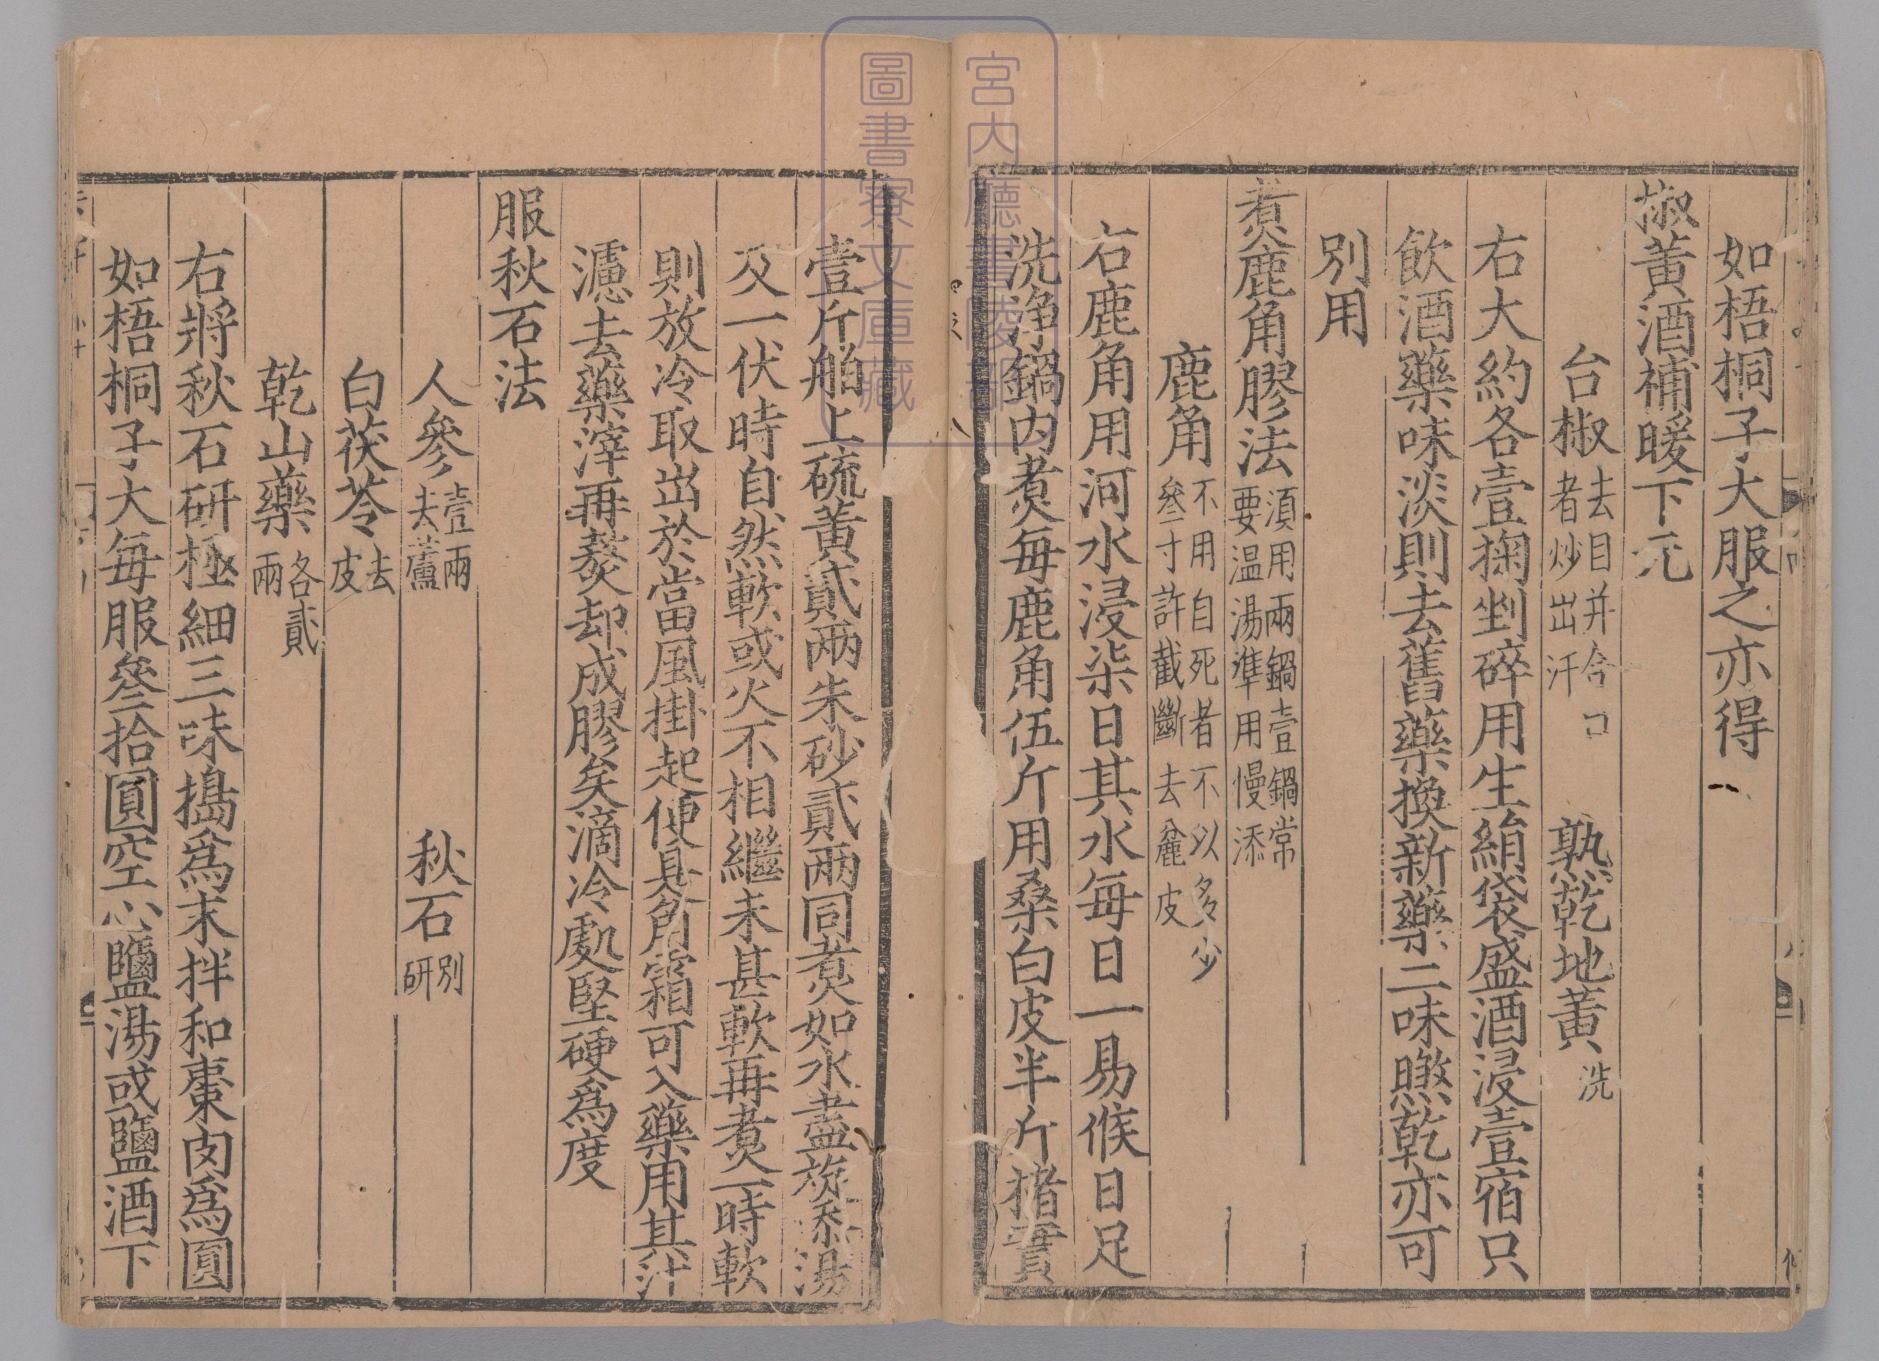 如梧桐子大服之亦得
椒黃酒補暖下元
台椒去目并合口者炒出汗 熟乾地黃洗
右大約各壹掬剉碎用生絹袋盛酒浸壹宿只
飲酒藥味淡則去舊藥換新藥二味㷇乾亦可
別用
煮鹿角膠法須用兩鍋壹鍋常要温湯準用慢添
鹿角不用自死者不以多少叄寸許截斷去麄皮
右鹿角用河水浸柒日其水每日一易候日足
洗淨鍋内煮每鹿角伍斤用桑白皮半斤楮實
壹斤舶上硫黃貳兩朱砂貳兩同煮如水盡旋添湯
及一伏時自然軟或火不相繼未甚軟再煮一時軟
則放冷取出於當風掛起便是角霜可入藥用其汁
濾去藥滓再熬却成膠矣滴冷處堅硬爲度
服秋石法
人參壹兩去蘆 秋石別研
白茯苓去皮
乾山藥各貳兩
右將秋石研極細三味搗爲末拌和棗肉爲圓
如梧桐子大每服叄拾圓空心鹽湯或鹽酒下
宮内廳書陵部
圖書寮文庫藏